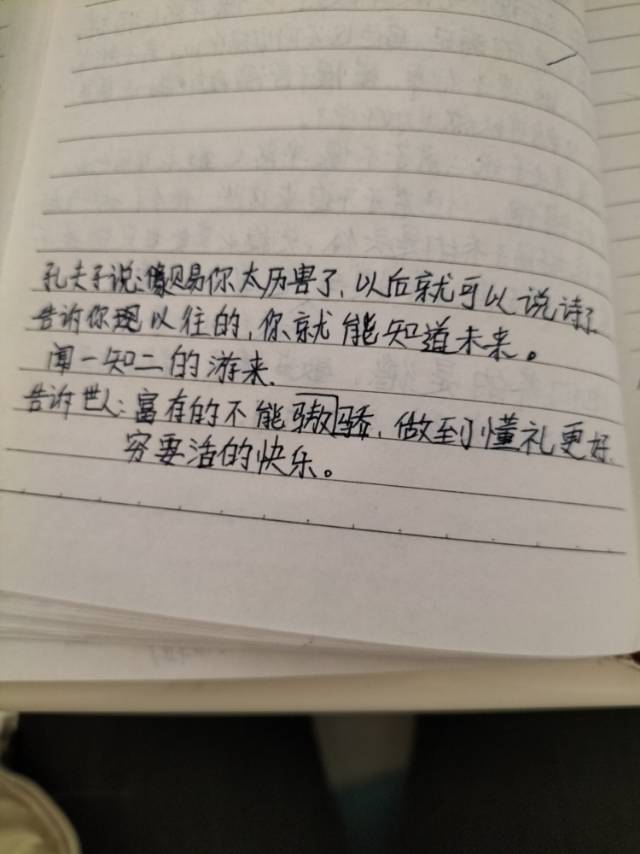 孔夫子说:赐易你太历害了,以后就可以说诗了
告诉你现以往的,你就能知道未来。
闻一知二的游来.
告诉世人:富存的不能骄,做到懂礼更好.
穷要活的快乐。